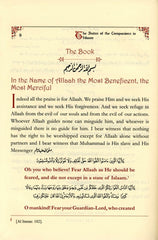 The Duties of the Companions in
Islaam
The Book
بسم الله الرحمن الرحيم
In the Name of Allaah the Most Beneficent, the
Most Merciful
Indeed all the praise is for Allaah. We praise Him and we seek His
assistance and we seek His forgiveness. And we seek refuge in
Allaah from the evil of our souls and from the evil of our actions.
Whoever Allaah guides none can misguide him, and whoever is
misguided there is no guide for him. I bear witness that nothing
has the right to be worshipped except for Allaah alone without
partners and I bear witness that Muhammad is His slave and His
Messenger
Oh you who believe! Fear Allaah as He should be
feared, and die not except in a state of Islaam.
O mankind! Fear your Guardian-Lord, who created
[Al Imran: 102].